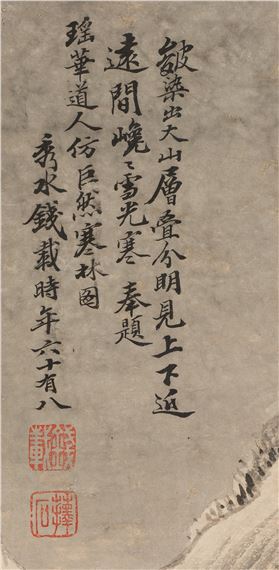 皴染出天山層疊分明見上下近
遠間嶢〻雪光寒 奉題
瑤華道人仿巨然寒林图
秀水錢載時年六十有八
錢載